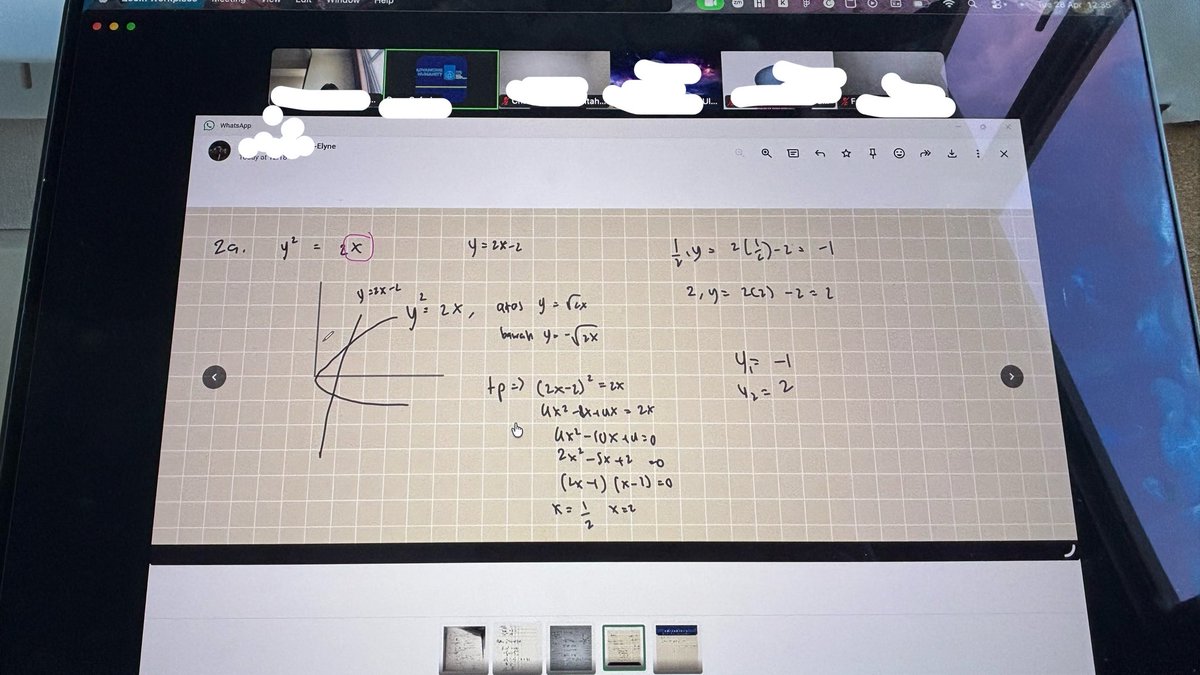 Zoom Workplace Meeting View Edit Window Help
Tue 28 Apr 12:35
ADVANCING
HUMANITY
WhatsApp
-Elyne
Today at 12:18
2a. y² = 2x
y = 2x-2
1/2, y = 2(1/2)-2 = -1
2, y = 2(2) -2 = 2
y=2x-2
y² = 2x, atas y = √2x
bawah y = -√2x
tp => (2x-2)² = 2x
4x² -8x+4x = 2x
4x² -10x+4=0
2x² -5x+2 =0
(2x-1) (x-2) =0
x = 1/2 x=2
y₁= -1
y₂= 2